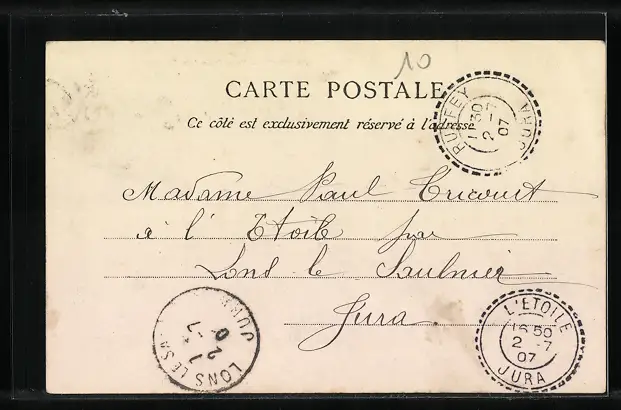 10
CARTE POSTALE
Ce côté est exclusivement réservé à l'adresse
RUFFEY JURA
2 -7
07
Madame Paul Tricourt
à l'Etoile par
Lons le Saulnier
Jura.
LONS LE SA JURA
L'ETOILE
16 50
2 -7
07
JURA